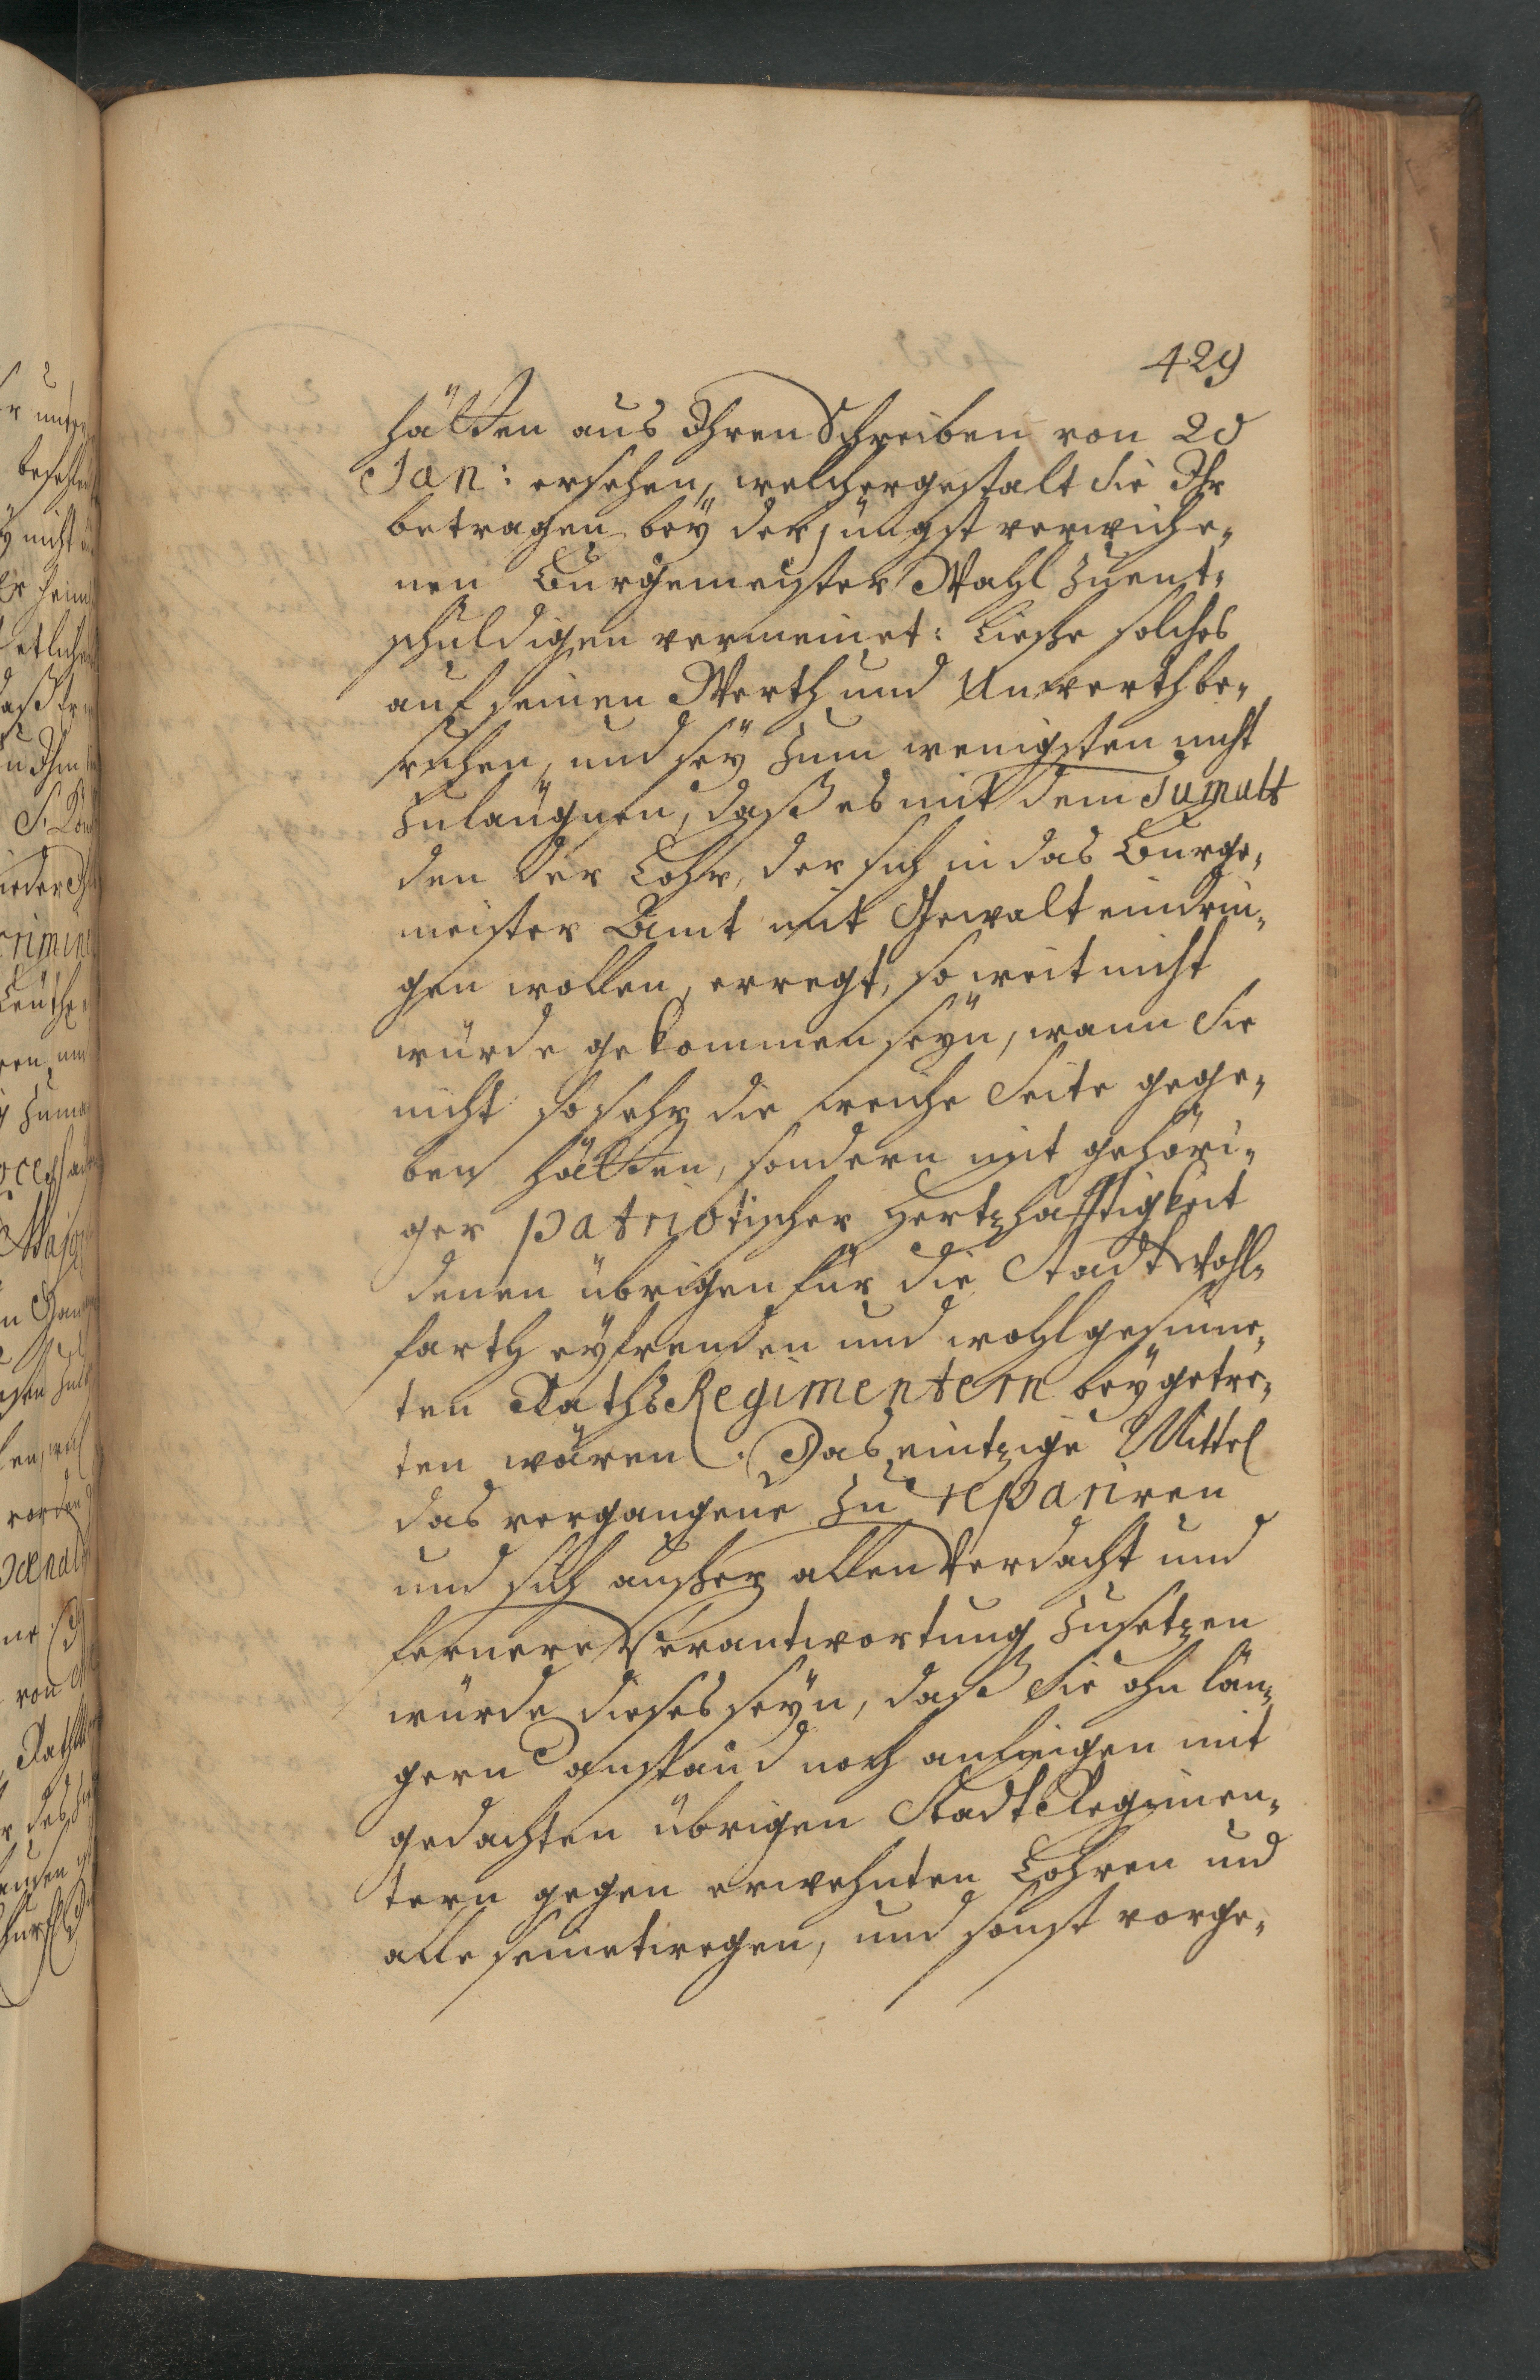 429
hätten aus Ihren Schreiben von 20
Jan: ersehen, welchergestalt sie Ihr
betragen bey der jüngst verwiche„
nen Burgemeister Wahl zuent„
schuldigen vermeinet: Ließe solches
auf seinen Werth und Unwerth be„
ruhen, und sey zum wenigsten nicht
zuläugnen, daß es mit dem Tumult
den der Lohr, der sich in das Burge„
meister Amt mit Gewalt eindrin„
gen wollen, erregt, so weit nicht
würde gekommen seyn, wann Sie
nicht so sehr die weiche Seite gege„
ben hätten, sondern mit gehöri„
ger patriotischer Hertzhafftigkeit
denen übrigen für die Stadt Wohl„
farth eyfrenden und wohlgesinne„
ten Raths Regimentern beygetre„
ten wären. Das eintzige Mittel
das vergangene zu repariren
und sich außer allen Verdacht und
fernere Verantwortung zusetzen
würde dieses seyn, daß Sie ohn län„
gern anstand noch anheigen mit
gedachten übrigen Stadt Regimen„
tern gegen erwehnten Lohren und
alle seinetwegen, und sonst vorge„